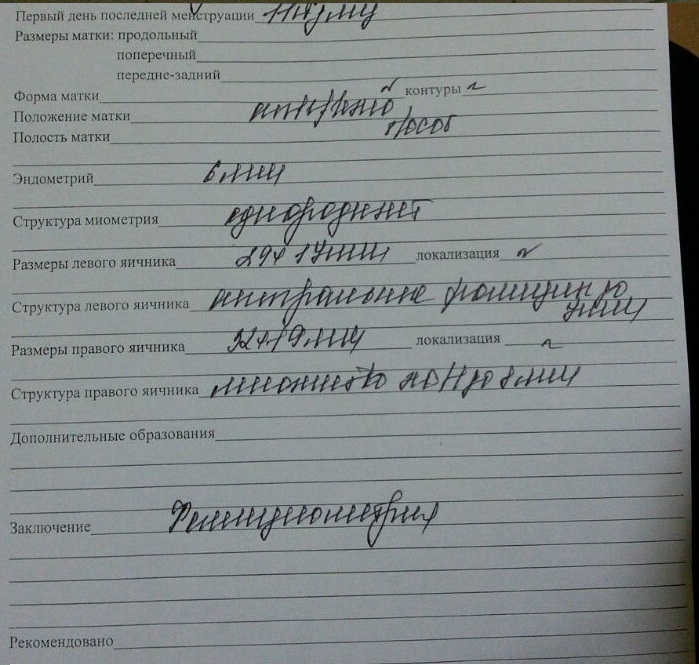 Первый день последней менструации 11 д/м ц
Размеры матки: продольный
поперечный
передне-задний
Форма матки контуры
Положение матки
Полость матки
Эндометрий 6 мм
Структура миометрия однородная
Размеры левого яичника 29х17мм локализация
Структура левого яичника антральные фолликулы до 7мм
Размеры правого яичника 32х19мм локализация
Структура правого яичника множество до 8мм
Дополнительные образования
Заключение Фолликулометрия
Рекомендовано